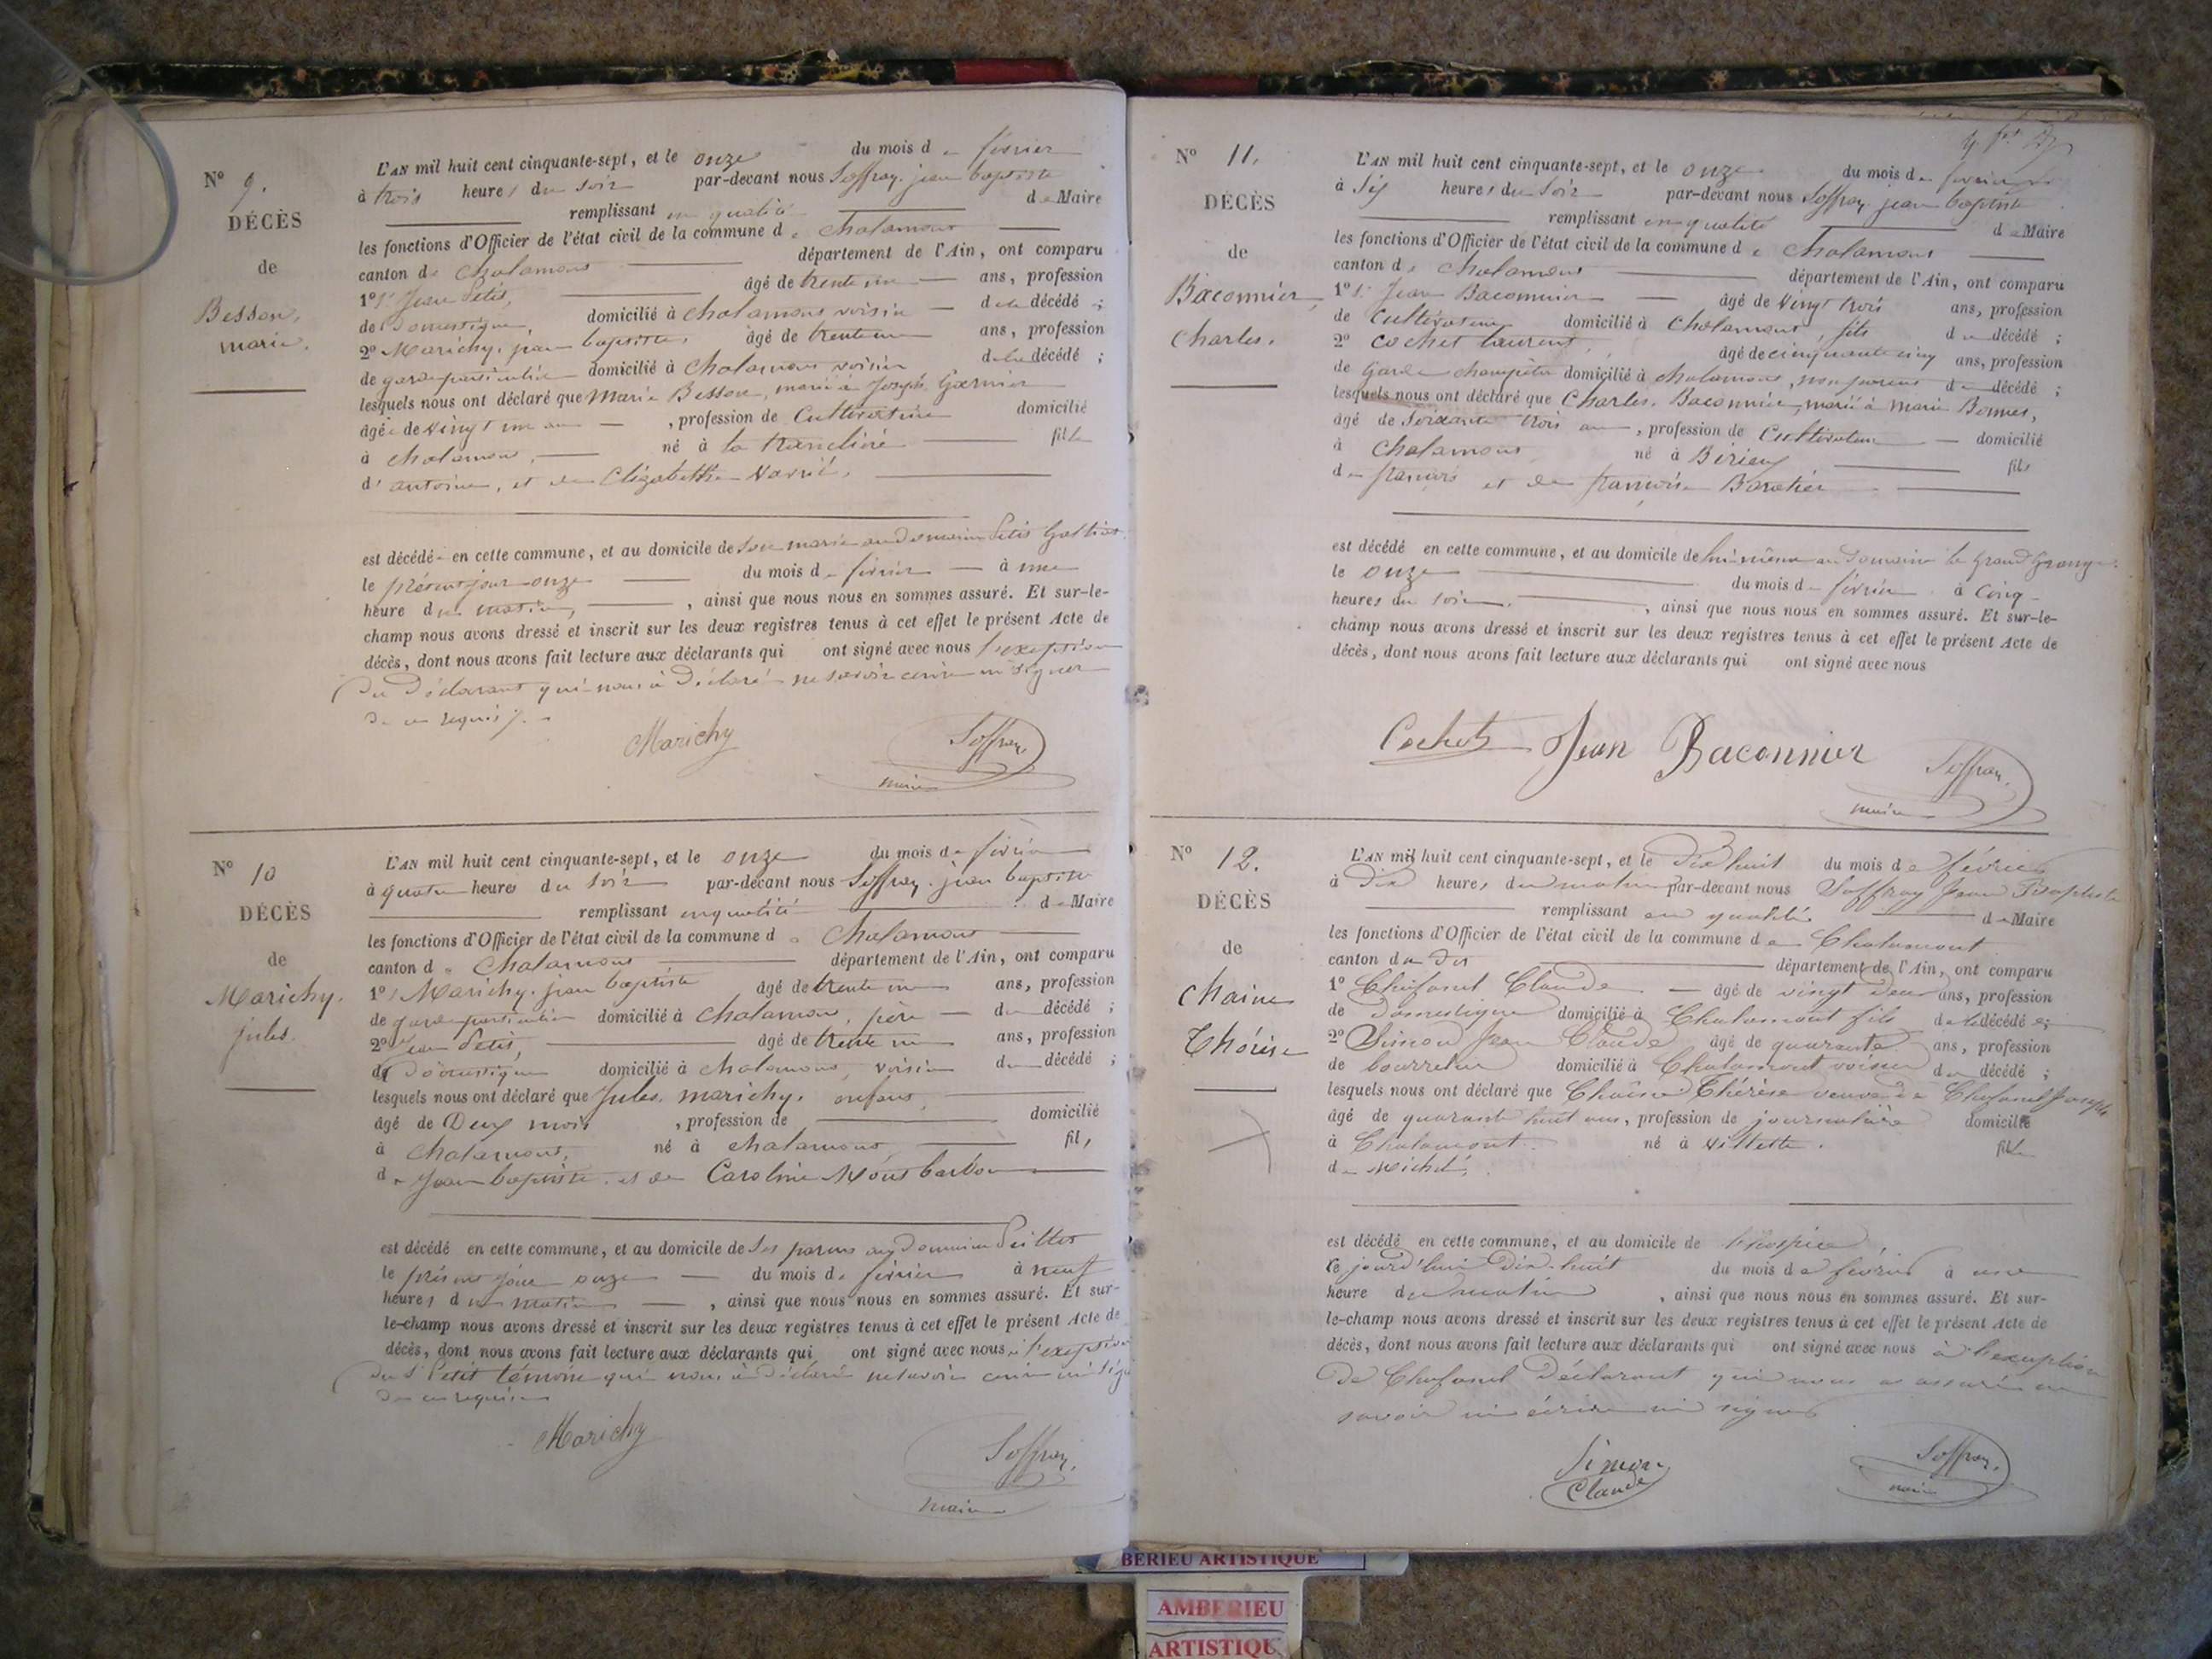 N° 9.
DÉCÈS
de
Besson,
marie.
L'AN mil huit cent cinquante-sept, et le onze du mois de février
à trois heures du soir par-devant nous Soffray jean baptiste
remplissant en qualité de Maire
les fonctions d'Officier de l'état civil de la commune de Chalamont
canton de Chalamont département de l'Ain, ont comparu
1° Sr Jean Petit, âgé de trente un ans, profession
de Domestique, domicilié à Chalamont voisin de la décédée ;
2° Marichy, jean baptiste, âgé de trente un ans, profession
de garde particulier domicilié à Chalamont voisin de la décédé ;
lesquels nous ont déclaré que Marie Besson, mariée à Joseph Garnier
âgée de vingt un ans , profession de Cultivatrice domicilié
à Chalamont, né à la tranclière fille
d'antoine, et de Elizabeth
est décédé en cette commune, et au domicile de son mari au domaine Petit
le présent jour onze du mois de février à une
heure du matin, , ainsi que nous nous en sommes assuré. Et sur-le-
champ nous avons dressé et inscrit sur les deux registres tenus à cet effet le présent Acte de
décès, dont nous avons fait lecture aux déclarants qui ont signé avec nous l'exeption
du Déclarant qui nous à Déclaré ne savoir écrire ni signer
de ce requis
Marichy Soffray
maire
N° 10
DÉCÈS
de
Marichy.
jules.
L'AN mil huit cent cinquante-sept, et le onze du mois de février
à quatre heures du soir par-devant nous Soffray jean baptiste
remplissant en qualité de Maire
les fonctions d'Officier de l'état civil de la commune de Chalamont
canton de Chalamont département de l'Ain, ont comparu
1° Marichy, jean baptiste âgé de trente un ans, profession
de garde particulier domicilié à Chalamont, père du décédé ;
2° Jean Petit, âgé de trente un ans, profession
de Domestique domicilié à Chalamont, voisin du décédé ;
lesquels nous ont déclaré que Jules, marichy, enfant,
âgé de Deux mois , profession de domicilié
à Chalamont, né à Chalamont, fils
de Jean baptiste, et de Caroline Montbarbon
est décédé en cette commune, et au domicile de ses parens au Domaine
le présent jour onze du mois de février à neuf
heures du matin , ainsi que nous nous en sommes assuré. Et sur-
le-champ nous avons dressé et inscrit sur les deux registres tenus à cet effet le présent Acte de
décès, dont nous avons fait lecture aux déclarants qui ont signé avec nous à l'exeption
du Sr Petit témoin qui nous à Déclaré ne savoir écrire ni
de ce requis
Marichy Soffray.
maire
N° 11.
DÉCÈS
de
Baconnier,
Charles.
L'AN mil huit cent cinquante-sept, et le onze du mois de février
à six heures du soir par-devant nous Soffray jean baptiste
remplissant en qualité de Maire
les fonctions d'Officier de l'état civil de la commune de Chalamont
canton de Chalamont département de l'Ain, ont comparu
1° Sr Jean Baconnier âgé de vingt trois ans, profession
de Cultivateur domicilié à Chalamont, fils du décédé ;
2° Cochet laurent, âgé de cinquante cinq ans, profession
de Garde champêtre domicilié à Chalamont, non parent du décédé ;
lesquels nous ont déclaré que Charles, Baconnier, marié à marie Bonnet,
âgé de soixante trois ans , profession de Cultivateur domicilié
à Chalamont né à Birieux fils
de françois et de françoise Baratier
est décédé en cette commune, et au domicile de lui même au Domaine la Grand Grange
le onze du mois de février à cinq
heures du soir. , ainsi que nous nous en sommes assuré. Et sur-le-
champ nous avons dressé et inscrit sur les deux registres tenus à cet effet le présent Acte de
décès, dont nous avons fait lecture aux déclarants qui ont signé avec nous
Cochet Jean Baconnier Soffray.
maire
N° 12.
DÉCÈS
de
Chaine
Thérèse
L'AN mil huit cent cinquante-sept, et le Dix huit du mois de février
à Dix heures du matin par-devant nous Soffray Jean Baptiste
remplissant en qualité de Maire
les fonctions d'Officier de l'état civil de la commune de Chalamont
canton du dit département de l'Ain, ont comparu
1° Claude âgé de vingt deux ans, profession
de Domestique domicilié à Chalamont fils de la décédée ;
2° Simon Jean Claude âgé de quarante ans, profession
de bourrelier domicilié à Chalamont voisin du décédé ;
lesquels nous ont déclaré que Chaine Thérèse veuve de Joseph
âgé de quarante huit ans, profession de journalière domicilié
à Chalamont. né à Villette. fille
de Michel,
est décédé en cette commune, et au domicile de l'hospice,
le jourd'hui Dix-huit du mois de février à une
heure du matin , ainsi que nous nous en sommes assuré. Et sur-
le-champ nous avons dressé et inscrit sur les deux registres tenus à cet effet le présent Acte de
décès, dont nous avons fait lecture aux déclarants qui ont signé avec nous à l'exception
de Déclarant qui nous a assuré ne
savoir ni écrire ni signer
Simon
Claude
Soffray.
maire
BERIEU ARTISTIQUE
AMBERIEU
ARTISTIQU